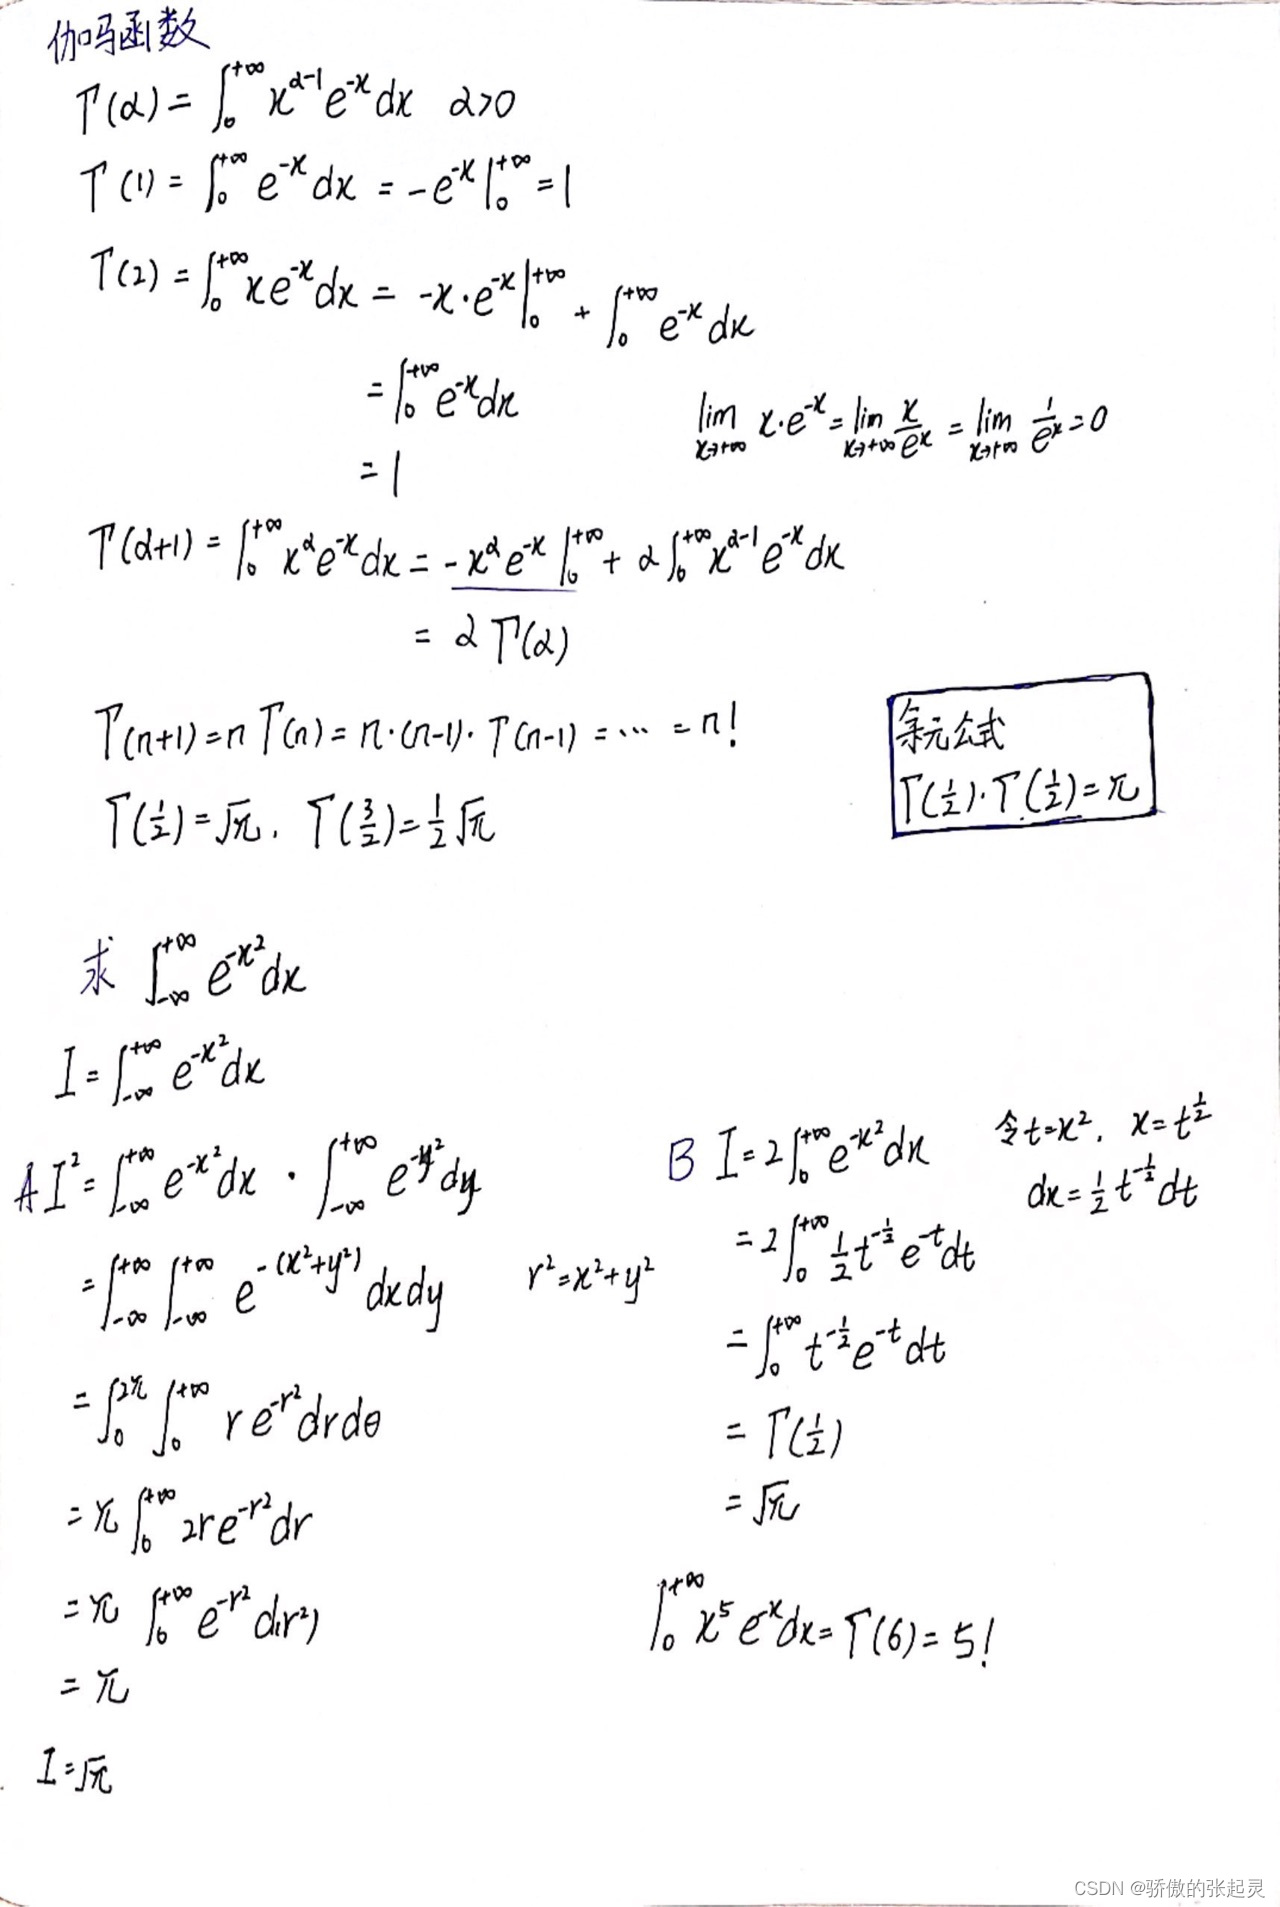 伽吗函数
Γ(α) = ∫₀^{+∞} x^{α-1} e^{-x} dx α>0
Γ(1) = ∫₀^{+∞} e^{-x} dx = -e^{-x} |₀^{+∞} = 1
Γ(2) = ∫₀^{+∞} x e^{-x} dx = -x·e^{-x} |₀^{+∞} + ∫₀^{+∞} e^{-x} dx
= ∫₀^{+∞} e^{-x} dx
lim_{x→+∞} x·e^{-x} = lim_{x→+∞} x/e^x = lim_{x→+∞} 1/e^x = 0
= 1
Γ(α+1) = ∫₀^{+∞} x^α e^{-x} dx = -x^α e^{-x} |₀^{+∞} + α ∫₀^{+∞} x^{α-1} e^{-x} dx
= α Γ(α)
Γ(n+1) = n Γ(n) = n·(n-1)·Γ(n-1) = ··· = n!
Γ(1/2) = √π, Γ(3/2) = 1/2 √π
余元公式
Γ(1/2)·Γ(1/2) = π
求 ∫_{-∞}^{+∞} e^{-x²} dx
I = ∫_{-∞}^{+∞} e^{-x²} dx
A I² = ∫_{-∞}^{+∞} e^{-x²} dx · ∫_{-∞}^{+∞} e^{-y²} dy
= ∫_{-∞}^{+∞} ∫_{-∞}^{+∞} e^{-(x²+y²)} dxdy r² = x²+y²
= ∫₀^{2π} ∫₀^{+∞} r e^{-r²} drdθ
= π ∫₀^{+∞} 2r e^{-r²} dr
= π ∫₀^{+∞} e^{-r²} d(r²)
= π
I = √π
B I = 2 ∫₀^{+∞} e^{-x²} dx 令 t=x², x = t^{1/2}
dx = 1/2 t^{-1/2} dt
= 2 ∫₀^{+∞} 1/2 t^{-1/2} e^{-t} dt
= ∫₀^{+∞} t^{-1/2} e^{-t} dt
= Γ(1/2)
= √π
∫₀^{+∞} x⁵ e^{-x} dx = Γ(6) = 5!
CSDN @骄傲的张起灵